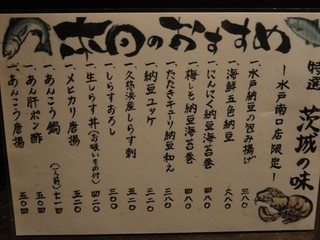 本日のおすすめ
特選 茨城の味
ー水戸南口店限定ー
一、水戸納豆の包み揚げ 三八〇
一、海鮮五色納豆 六八〇
一、にんにく納豆海苔巻 四八〇
一、梅しそ納豆海苔巻 四八〇
一、たたきキューリ納豆和え 三八〇
一、納豆ユッケ
一、久慈浜産しらす刺 五二〇
一、しらすおろし 三〇〇
一、生しらす丼(お吸いもの付) 四二〇
一、メヒカリ唐揚 五二〇
一、あんこう鍋 (一人前) 七一四
一、あん肝ポン酢 五〇四
一、あんこう唐揚 五〇四